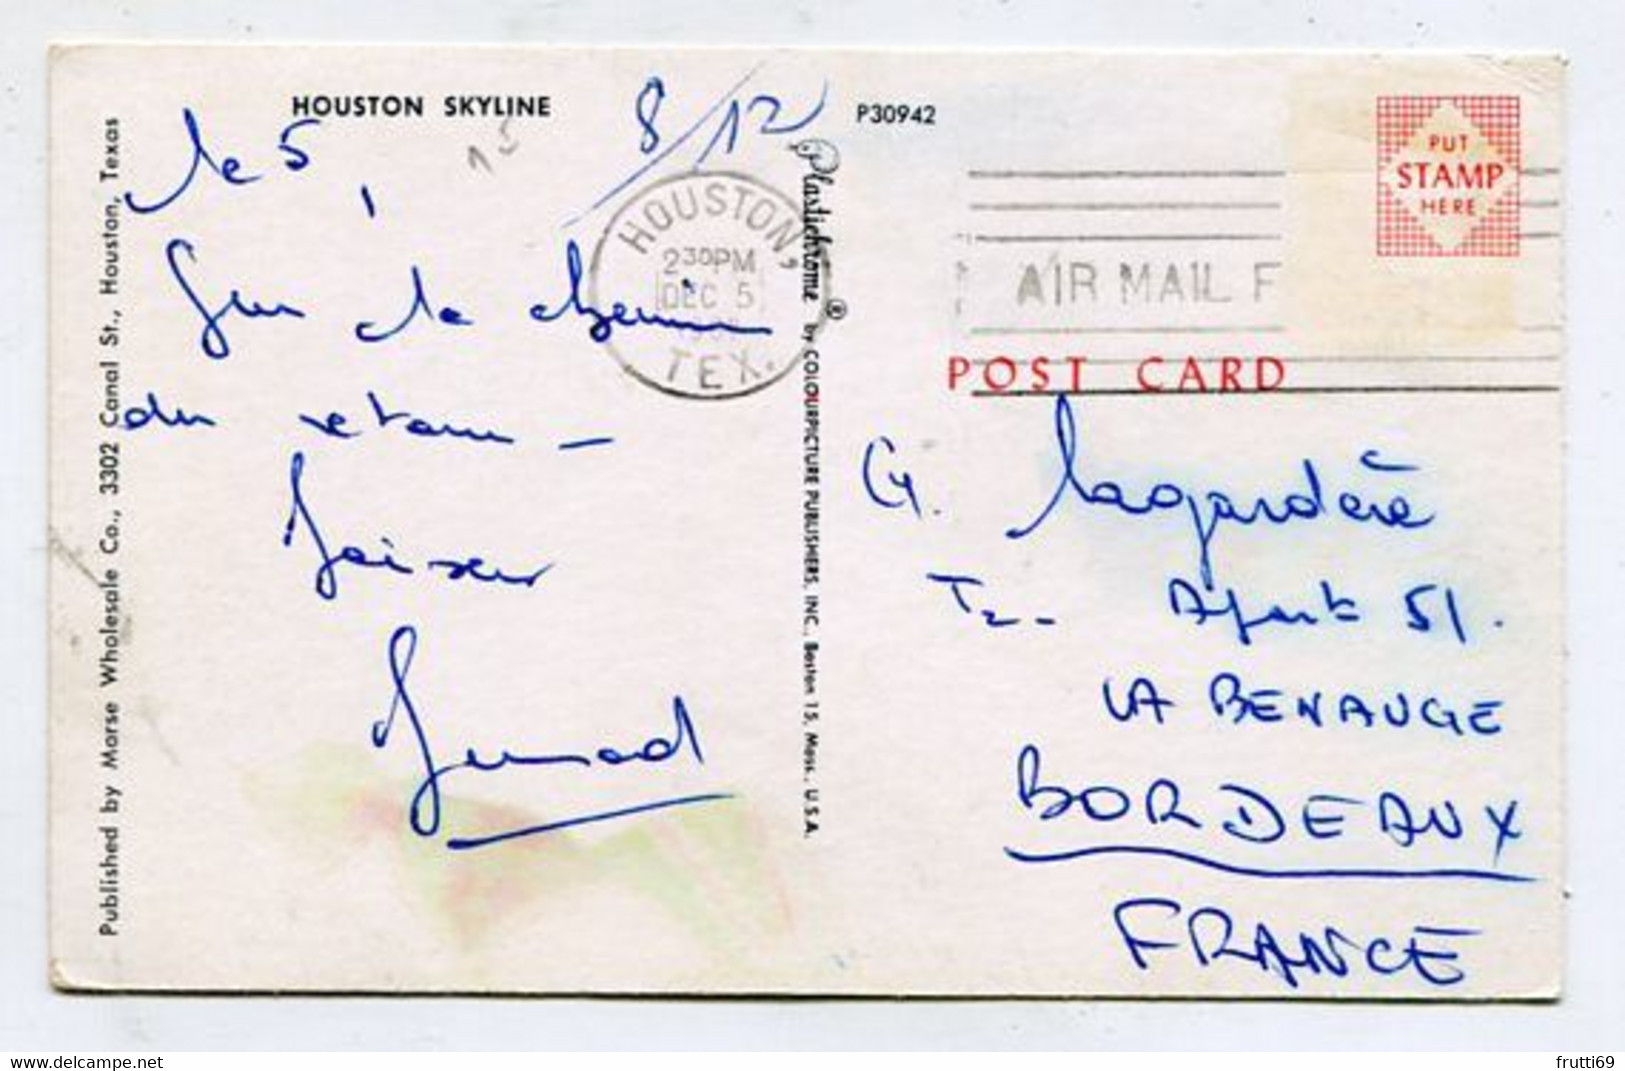 HOUSTON SKYLINE
8/12
P30942
15
le 5,
Sur le chemin
du retour -
Baiser
Published by Morse Wholesale Co., 3302 Canal St., Houston, Texas
HOUSTON,
2 30 PM
DEC 5
TEX.
Plastichrome ® by COLOURPICTURE PUBLISHERS, INC., Boston 15, Mass., U.S.A.
PUT
STAMP
HERE
AIR MAIL F
POST CARD
Lagardère
Apart 51.
LA BENAUGE
BORDEAUX
FRANCE
frutti69